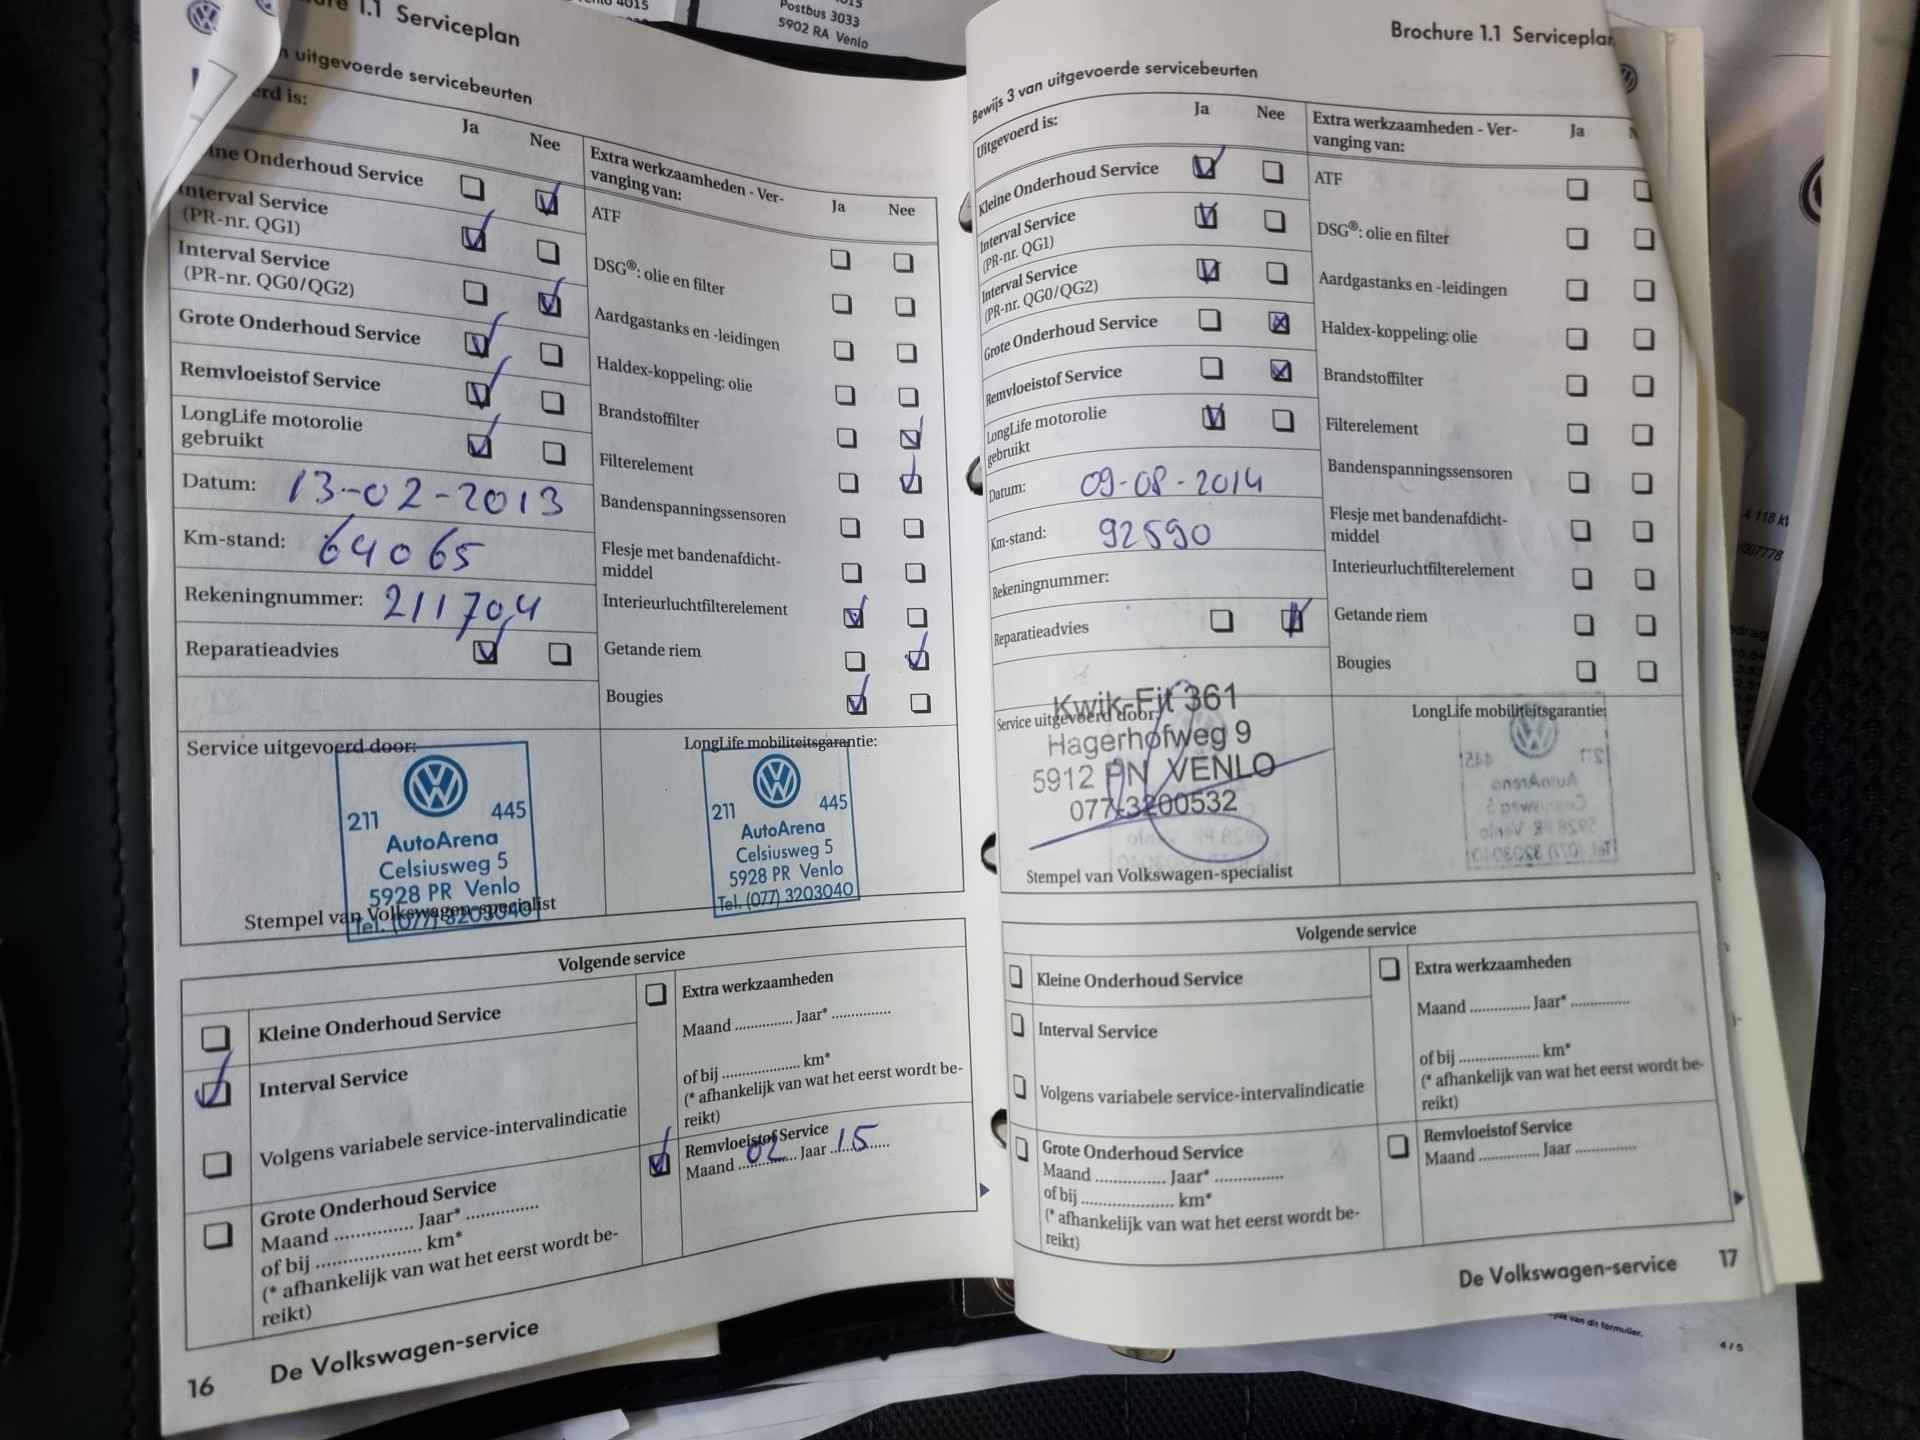 4015
Postbus 3033
5902 RA Venlo
1.1 Serviceplan
uitgevoerde servicebeurten
is:
Ja
Nee
Extra werkzaamheden - Ver-
vanging van:
Ja
Nee
Onderhoud Service
Interval Service
(PR-nr. QG1)
Interval Service
(PR-nr. QG0/QG2)
Grote Onderhoud Service
Remvloeistof Service
LongLife motorolie
gebruikt
Datum: 13-02-2013
Km-stand: 64065
Rekeningnummer: 211704
Reparatieadvies
ATF
DSG®: olie en filter
Aardgastanks en -leidingen
Haldex-koppeling: olie
Brandstoffilter
Filterelement
Bandenspanningssensoren
Flesje met bandenafdicht-
middel
Interieurluchtfilterelement
Getande riem
Bougies
Service uitgevoerd door:
211 445
AutoArena
Celsiusweg 5
5928 PR Venlo
Tel. (077) 3203040
Stempel van Volkswagen-specialist
LongLife mobiliteitsgarantie:
211 445
AutoArena
Celsiusweg 5
5928 PR Venlo
Tel. (077) 3203040
Volgende service
Kleine Onderhoud Service
Interval Service
Volgens variabele service-intervalindicatie
Grote Onderhoud Service
Maand .............. Jaar* ..............
of bij .................... km*
(* afhankelijk van wat het eerst wordt be-
reikt)
Extra werkzaamheden
Maand .............. Jaar* ..............
of bij .................... km*
(* afhankelijk van wat het eerst wordt be-
reikt)
Remvloeistof Service
Maand 02 Jaar 15
16 De Volkswagen-service
Brochure 1.1 Serviceplan
Bewijs 3 van uitgevoerde servicebeurten
Uitgevoerd is:
Ja
Nee
Extra werkzaamheden - Ver-
vanging van:
Ja
Kleine Onderhoud Service
Interval Service
(PR-nr. QG1)
Interval Service
(PR-nr. QG0/QG2)
Grote Onderhoud Service
Remvloeistof Service
LongLife motorolie
gebruikt
Datum: 09-08-2014
Km-stand: 92590
Rekeningnummer:
Reparatieadvies
ATF
DSG®: olie en filter
Aardgastanks en -leidingen
Haldex-koppeling: olie
Brandstoffilter
Filterelement
Bandenspanningssensoren
Flesje met bandenafdicht-
middel
Interieurluchtfilterelement
Getande riem
Bougies
Service uitgevoerd door:
Kwik-Fit 361
Hagerhofweg 9
5912 PN VENLO
077-3200532
Stempel van Volkswagen-specialist
LongLife mobiliteitsgarantie:
Volgende service
Kleine Onderhoud Service
Interval Service
Volgens variabele service-intervalindicatie
Grote Onderhoud Service
Maand .............. Jaar* ..............
of bij .................... km*
(* afhankelijk van wat het eerst wordt be-
reikt)
Extra werkzaamheden
Maand .............. Jaar* ..............
of bij .................... km*
(* afhankelijk van wat het eerst wordt be-
reikt)
Remvloeistof Service
Maand .............. Jaar ..............
De Volkswagen-service 17
118
007778
van dit formulier.
4 / 5